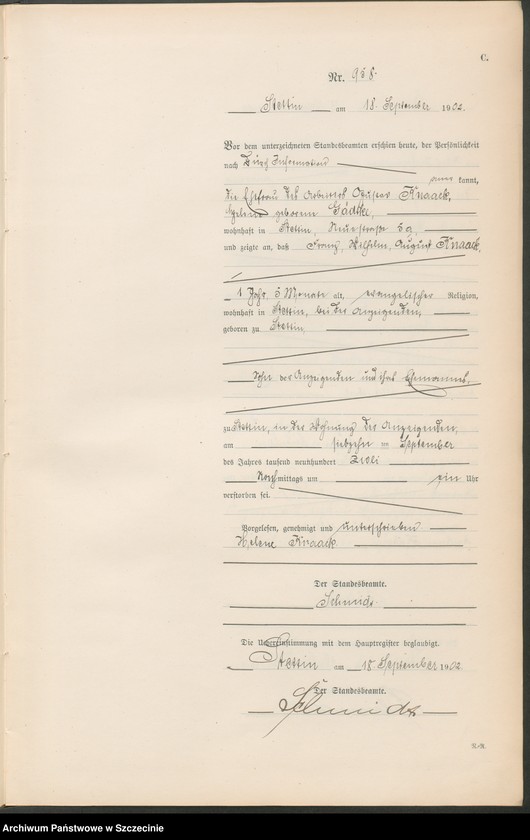 C.
Nr. 958.
Stettin am 18. September 1902.
Vor dem unterzeichneten Standesbeamten erschien heute, der Persönlichkeit
nach durch
kannt,
die Ehefrau des Arbeiters Gustav Knaack,
Helene geborene Gädtke,
wohnhaft in Stettin, 5a,
und zeigte an, daß Franz, Wilhelm, August Knaack,
1 Jahr, 5 Monate alt, evangelischer Religion,
wohnhaft in Stettin, bei der Anzeigenden,
geboren zu Stettin,
Sohn der Anzeigenden und ihres Ehemannes,
zu Stettin, in der Wohnung der Anzeigenden,
am siebzehn ten September
des Jahres tausend neunhundert zwei
Nachmittags um ein Uhr
verstorben sei.
Vorgelesen, genehmigt und unterschrieben
Helene Knaack
Der Standesbeamte.
Schmidt
Die Uebereinstimmung mit dem Hauptregister beglaubigt.
Stettin am 18. September 1902
Der Standesbeamte.
Schmidt
Archiwum Państwowe w Szczecinie